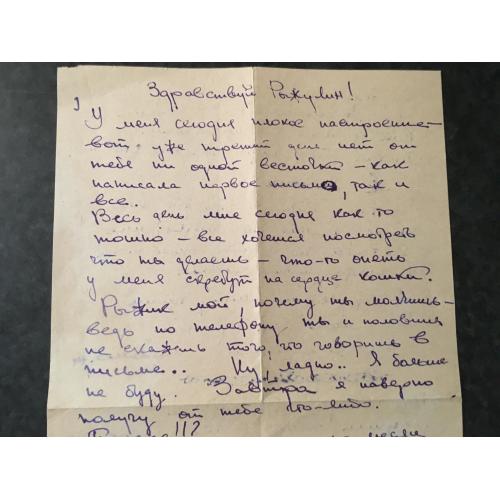 Здравствуй Рыжулин!
У меня сегодня плохое настроение –
вот уже третий день нет от
тебя ни одной весточки – как
написала первое письмо, так и
все.
Весь день мне сегодня как то
тошно – все хочется посмотреть
что ты делаешь – что-то опять
у меня скребут на сердце кошки.
Рыжик мой, почему ты молчишь –
ведь по телефону ты и половины
не скажешь того, что говоришь в
письме.. Ну, ладно.. Я больше
не буду.. Завтра я наверно
получу от тебя что-либо.
!!?